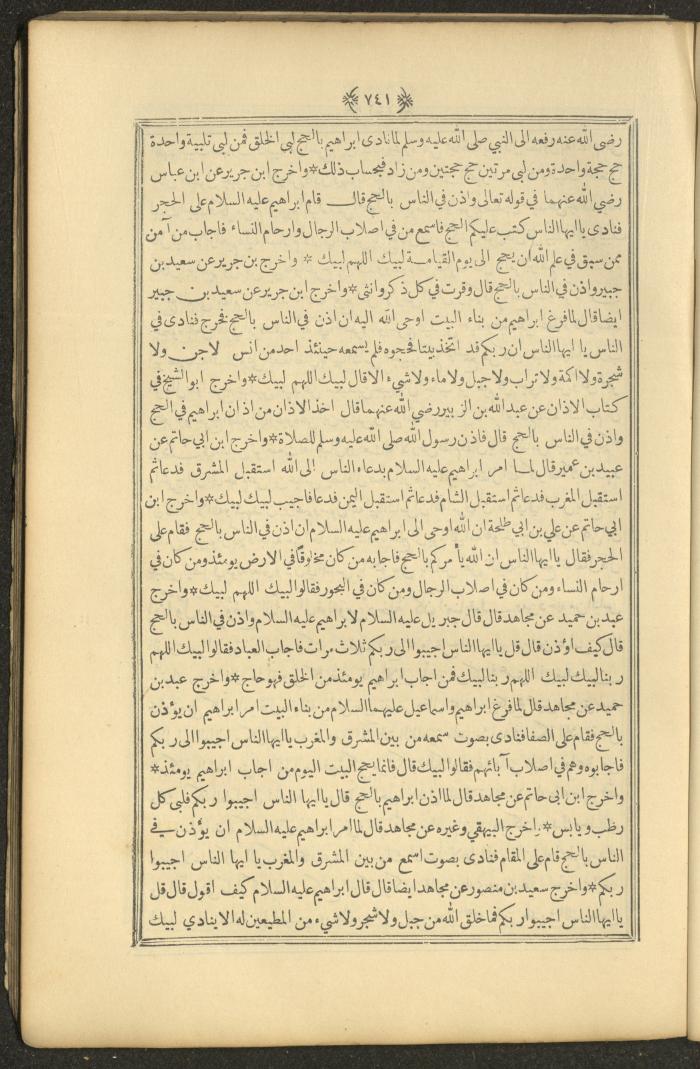 ﴿٧٤١﴾
رضى الله عنه رفعه الى النبي صلى الله عليه وسلم لما نادى ابراهيم بالحج لبى الخلق فمن لبى تلبية واحدة
حج حجة واحدة ومن لبى مرتين حج حجتين ومن زاد فبحساب ذلك * واخرج ابن جرير عن ابن عباس
رضي الله عنهما في قوله تعالى واذن في الناس بالحج قال قام ابراهيم عليه السلام على الحجر
فنادى يا ايها الناس كتب عليكم الحج فاسمع من في اصلاب الرجال وارحام النساء فاجاب من آمن
ممن سبق في علم الله ان يحج الى يوم القيامة لبيك اللهم لبيك * واخرج بن جرير عن سعيد بن
جبير واذن في الناس بالحج قال وقرت في كل ذكر وانثى * واخرج ابن جرير عن سعيد بن جبير
ايضا قال لما فرغ ابراهيم من بناء البيت اوحى الله اليه ان اذن في الناس بالحج فخرج فنادى في
الناس يا ايها الناس ان ربكم قد اتخذ بيتا فحجوه فلم يسمعه حينئذ احد من انس لا جن ولا
شجرة ولا اكمة ولا تراب ولا جبل ولا ماء ولا شيء الا قال لبيك اللهم لبيك * واخرج ابو الشيخ في
كتاب الاذان عن عبد الله بن الزبير رضي الله عنهما قال اخذ الاذان من اذان ابراهيم في الحج
واذن في الناس بالحج قال فاذن رسول الله صلى الله عليه وسلم للصلاة * واخرج ابن ابي حاتم عن
عبيد بن عمير قال لما امر ابراهيم عليه السلام بدعاء الناس الى الله استقبل المشرق فدعا ثم
استقبل المغرب فدعا ثم استقبل الشام فدعا ثم استقبل اليمن فدعا فاجيب لبيك لبيك * واخرج ابن
ابي حاتم عن علي بن ابي طلحة ان الله اوحى الى ابراهيم عليه السلام ان اذن في الناس بالحج فقام على
الحجر فقال يا ايها الناس ان الله يأمركم بالحج فاجابه من كان مخلوقا في الارض يومئذ ومن كان في
ارحام النساء ومن كان في اصلاب الرجال ومن كان في البحور فقالوا لبيك اللهم لبيك * واخرج
عبد بن حميد عن مجاهد قال قال جبريل عليه السلام لابراهيم عليه السلام واذن في الناس بالحج
قال كيف اؤذن قال قل يا ايها الناس اجيبوا الى ربكم ثلاث مرات فاجاب العباد فقالوا لبيك اللهم
ربنا لبيك لبيك اللهم ربنا لبيك فمن اجاب ابراهيم يومئذ من الخلق فهو حاج * واخرج عبد بن
حميد عن مجاهد قال لما فرغ ابراهيم واسماعيل عليهما السلام من بناء البيت امر ابراهيم ان يؤذن
بالحج فقام على الصفا فنادى بصوت سمعه من بين المشرق والمغرب يا ايها الناس اجيبوا الى ربكم
فاجابوه وهم في اصلاب آبائهم فقالوا لبيك قال فانما يحج البيت اليوم من اجاب ابراهيم يومئذ *
واخرج ابن ابى حاتم عن مجاهد قال لما اذن ابراهيم بالحج قال يا ايها الناس اجيبوا ربكم فلبى كل
رظب ويابس * واخرج البيهقي وغيره عن مجاهد قال لما امر ابراهيم عليه السلام ان يؤذن في
الناس بالحج قام على المقام فنادى بصوت اسمع من بين المشرق والمغرب يا ايها الناس اجيبوا
ربكم * واخرج سعيد بن منصور عن مجاهد ايضا قال قال ابراهيم عليه السلام كيف اقول قال قل
يا ايها الناس اجيبوا ربكم فما خلق الله من جبل ولا شجر ولا شيء من المطيعين له الا ينادي لبيك